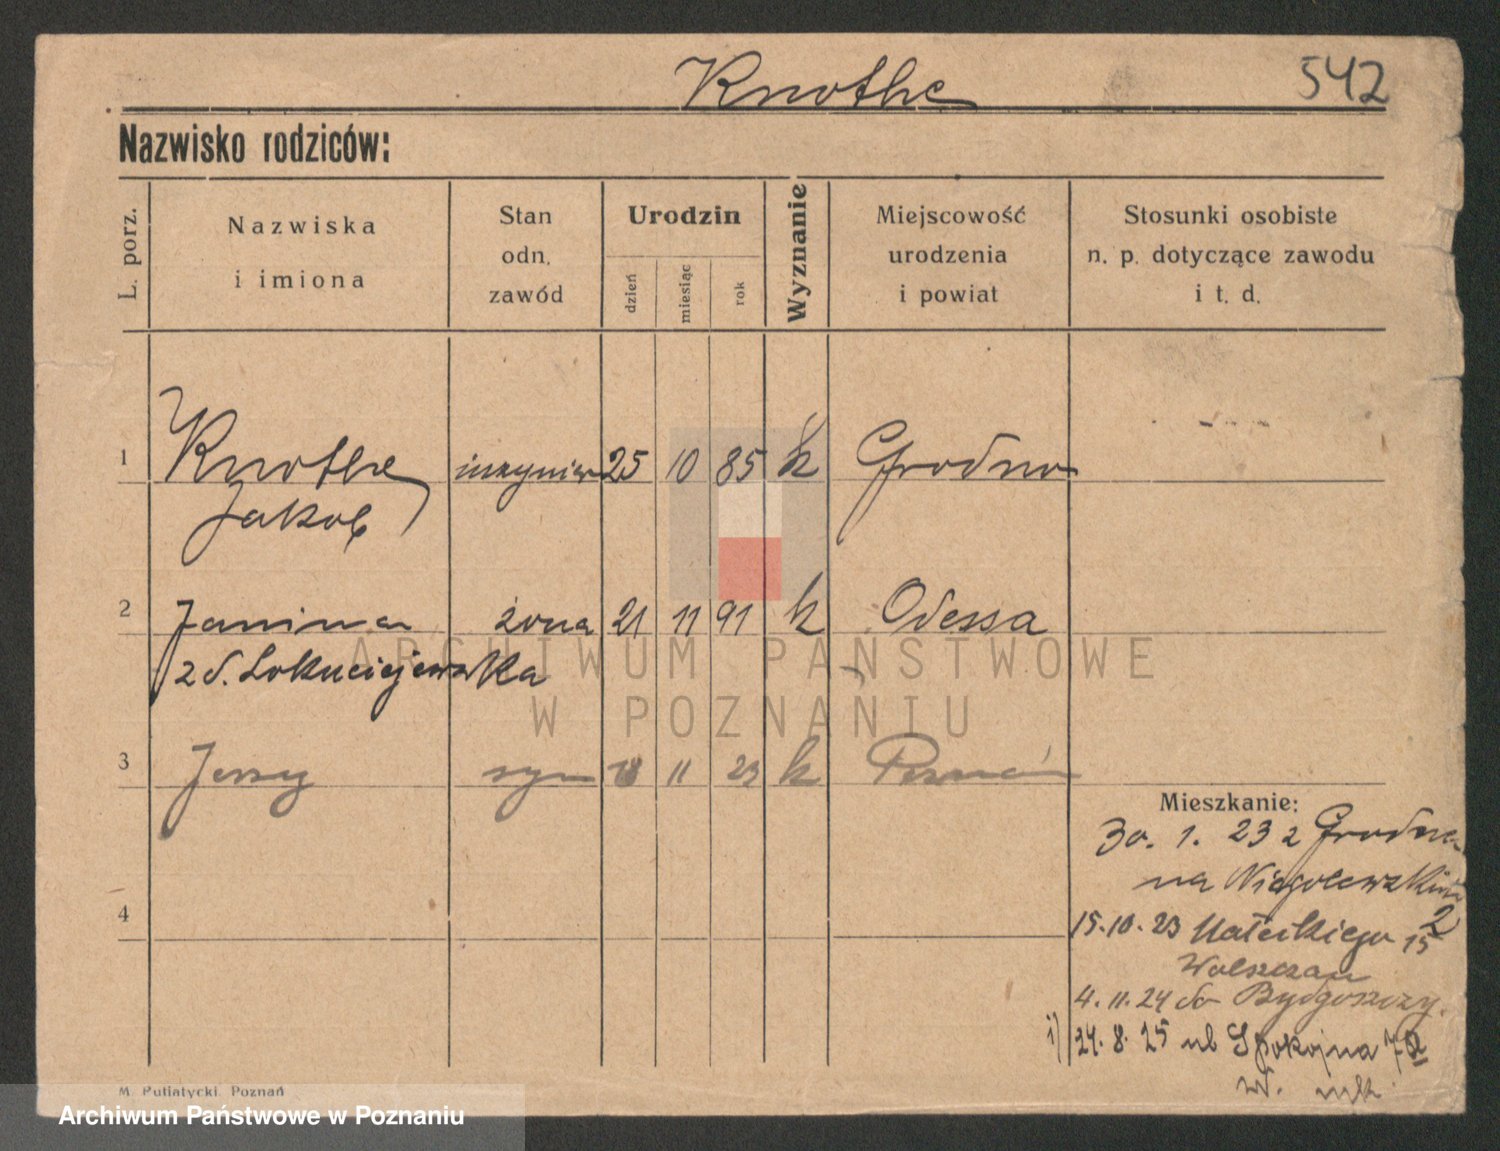 Knothe
542
Nazwisko rodziców:
L. porz.
Nazwiska
i imiona
Stan
odn.
zawód
Urodzin
dzień
miesiąc
rok
Wyznanie
Miejscowość
urodzenia
i powiat
Stosunki osobiste
n. p. dotyczące zawodu
i t. d.
1 Knothe inżynier 25 10 85 k Grodno
Jakob
2 Janina żona 21 11 91 k Odessa
z d.
3 Jerzy syn 18 11 23 k Poznań
Mieszkanie:
30. 1. 23 z Grodna
na Niegolewskich
2
15.10.23 Małeckiego 15
4.11.24 do Bydgoszczy.
1) 24. 8. 25 ul Spokojna
4
M. Putiatycki, Poznań
ARCHIWUM PAŃSTWOWE
W POZNANIU
Archiwum Państwowe w Poznaniu